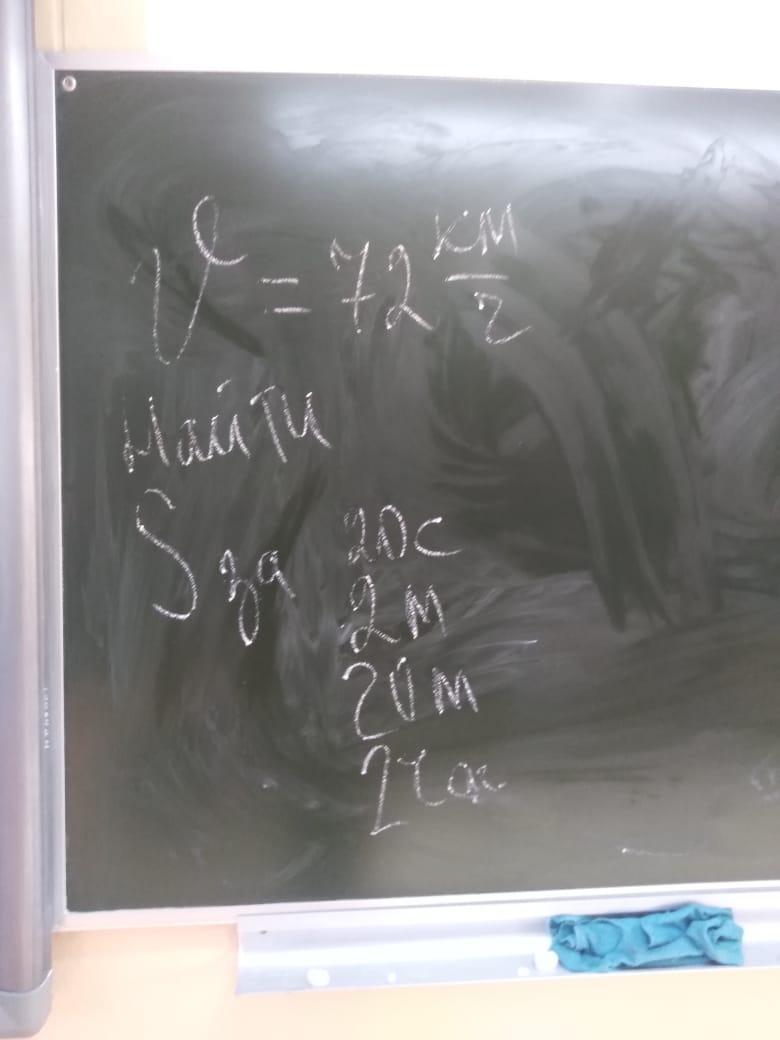 V = 72 км/ч
Найти
S за 20с
2м
20м
2час